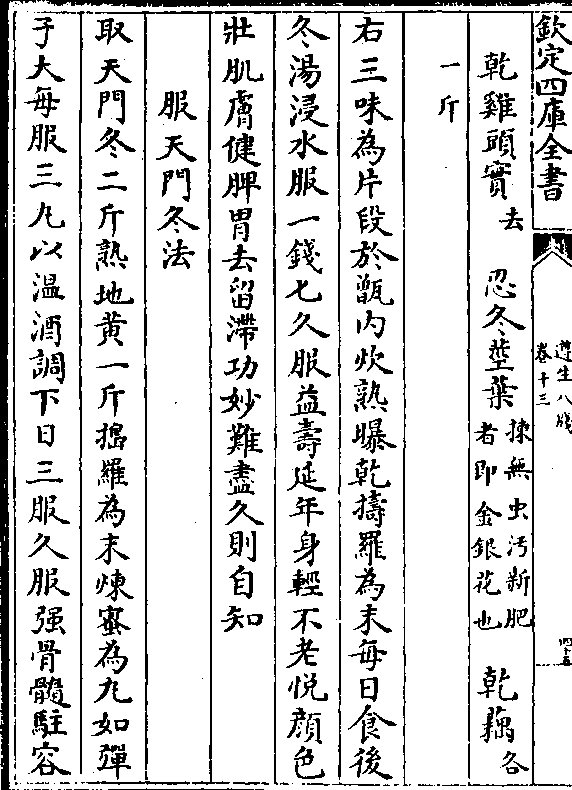 欽定四庫全書
遵生八牋
卷十三
四十五
乾雞頭實去 忍冬莖葉揀無虫汚新肥者即金銀花也 乾藕各
一斤
右三味為片段於甑内炊熟曝乾擣羅為末每日食後
冬湯浸水服一錢七久服益壽延年身輕不老悦顔色
壯肌膚健脾胃去留滯功妙難盡久則自知
服天門冬法
取天門冬二斤熟地黄一斤搗羅為末煉蜜為丸如彈
子大每服三丸以温酒調下日三服久服强骨髓駐容